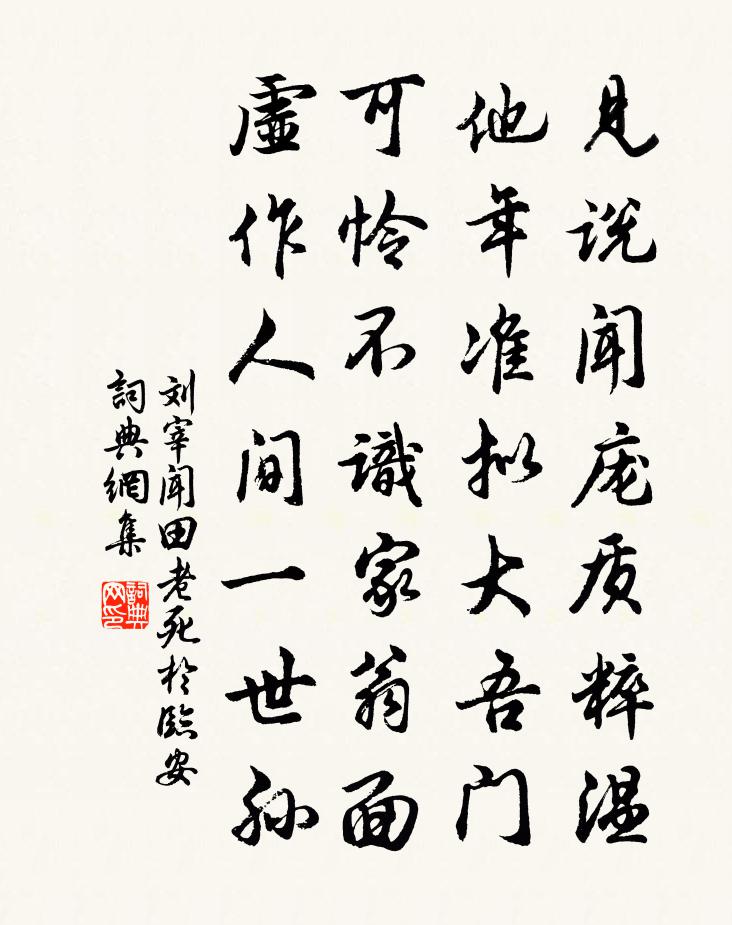 见说闻庞质粹温
他年准拟大吾门
可怜不识家翁面
虚作人间一世孙
刘宰闻田老死於临安
詞典網集
詞典网印